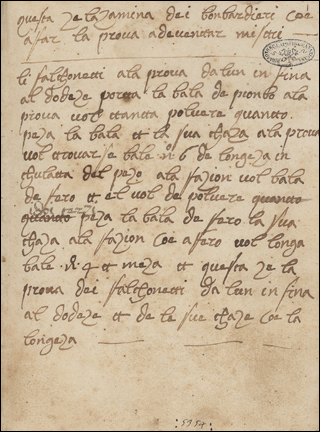 questa ze la zamina dei bonbardieri coe
a far la prova a deventar mistri
li falchonetti ala prova da lun in fina
al dodeze porta la bala de pionbo ala
prova vol ttanta polvere quantto
peza la bala et la sua chaza ala prova
vol ttrovar se bale nº 6 de longeza in
chulatta del pezo ala fazion vol bala
de fero et el vol de polvere quantto
quantto peza la bala de fero la sua
chaza ala fazion coe a fero vol longa
bale nº 4 et meza et questa ze la
prova dei falchonetti da lun in fina
al dodeze et de le sue chaze coe la
longeza
5954